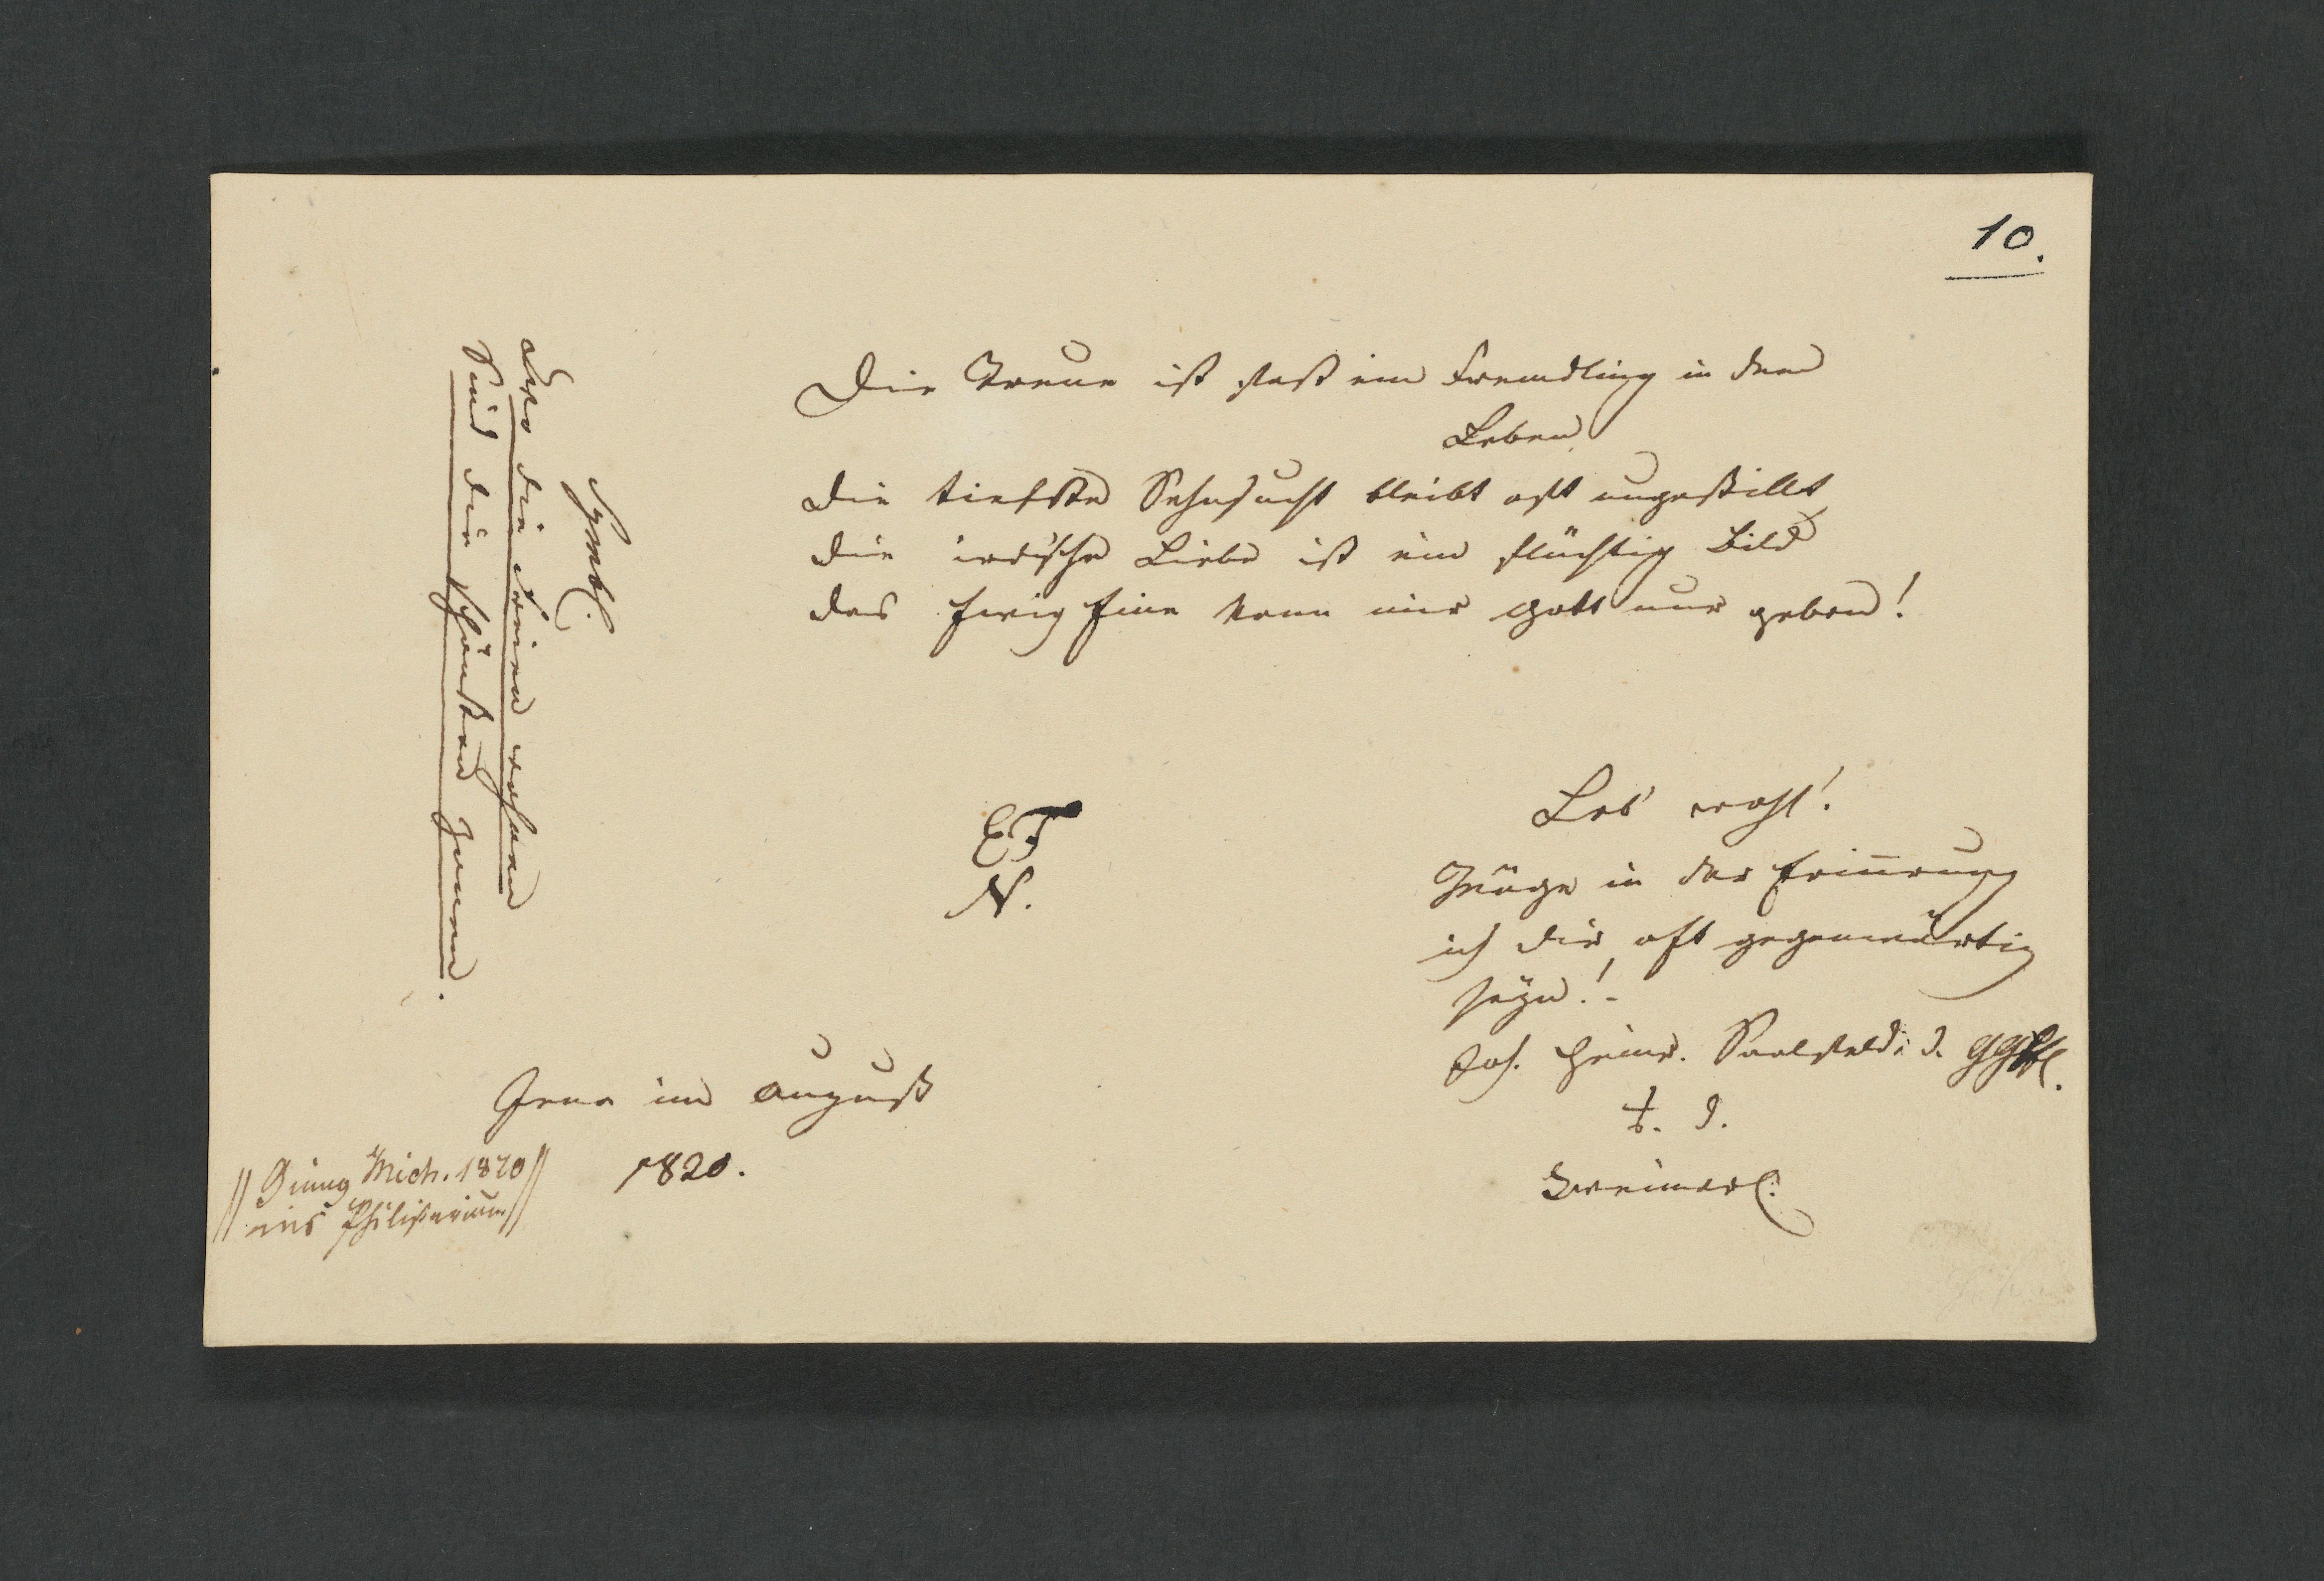 10.
Die Treue ist fast ein Fremdling in dem
Leben,
die tiefste Sehnsucht bleibt oft ungestillt,
die irdische Liebe ist ein flüchtig Bild
das Ewig Eine kann nur Gott nur geben!
Symb.
Wo die Freien wohnen
Sind die schönsten Zonen.
E.F.
N.
Leb' wohl!
Möge in der Erin̄rung
ich dir oft gegenwärtig
seyn! -
Joh. Heinr. Saalfeld. d. GGbfl.
t. d.
Jena im August
1820.
// Ging Mich. 1820 //
// ins Philisterium //